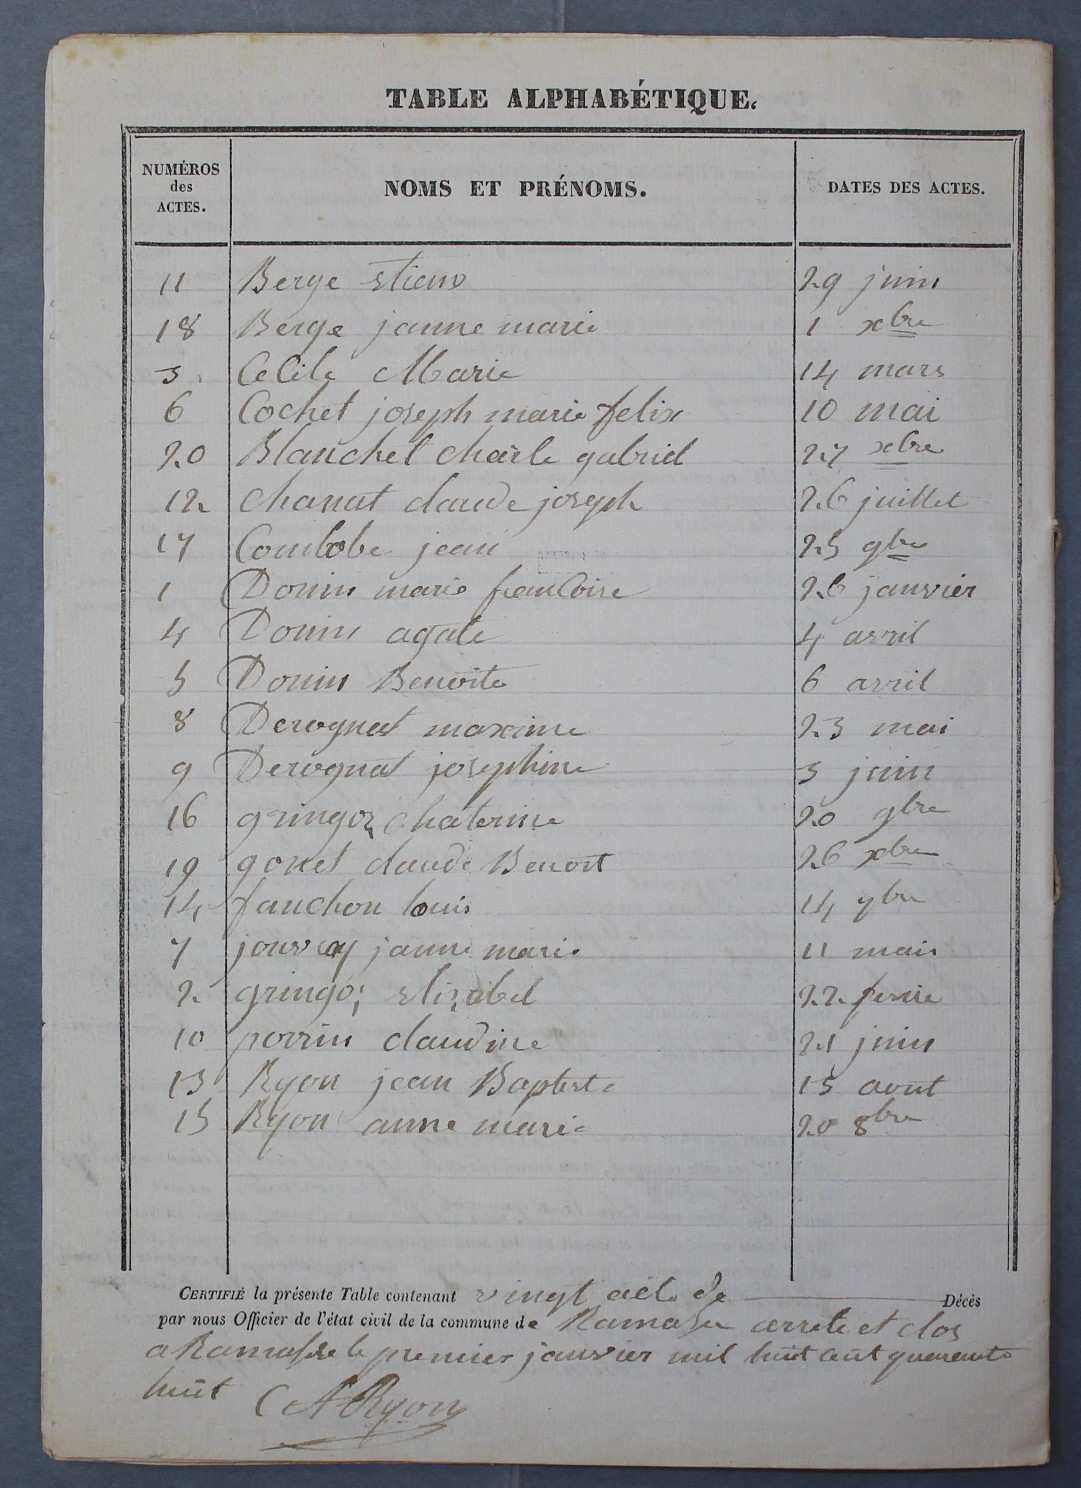 TABLE ALPHABÉTIQUE.
NUMÉROS des ACTES. NOMS ET PRÉNOMS. DATES DES ACTES.
11 Berge etiene 29 juin
18 Berge janne marie 1 xbre
3 Cecile Marie 14 mars
6 Cochet joseph marie felix 10 mai
20 Blanchet charle gabriel 27 xbre
12 Chanat claude joseph 26 juillet
17 jean 25 9bre
1 Donin marie francoise 26 janvier
4 Donin agate 4 avril
5 Donin Benoite 6 avril
8 Derognat maxime 23 mai
9 Derognat josephine 3 juin
16 gringoz Chaterine 20 9bre
19 gonet claude Benoit 26 xbre
14 fanchon louis 14 7bre
7 janne marie 11 mais
2 gringoz elizabet 22
10 perrin claudine 21 juin
13 Ryon jean Baptiste 15 aout
15 Ryon anne marie 20 8bre
CERTIFIÉ la présente Table contenant vingt acte de Décès
par nous Officier de l'état civil de la commune de Ramasse arrete et clos
a Ramasse le premier janvier mil huit cent quarante
huit Ryon